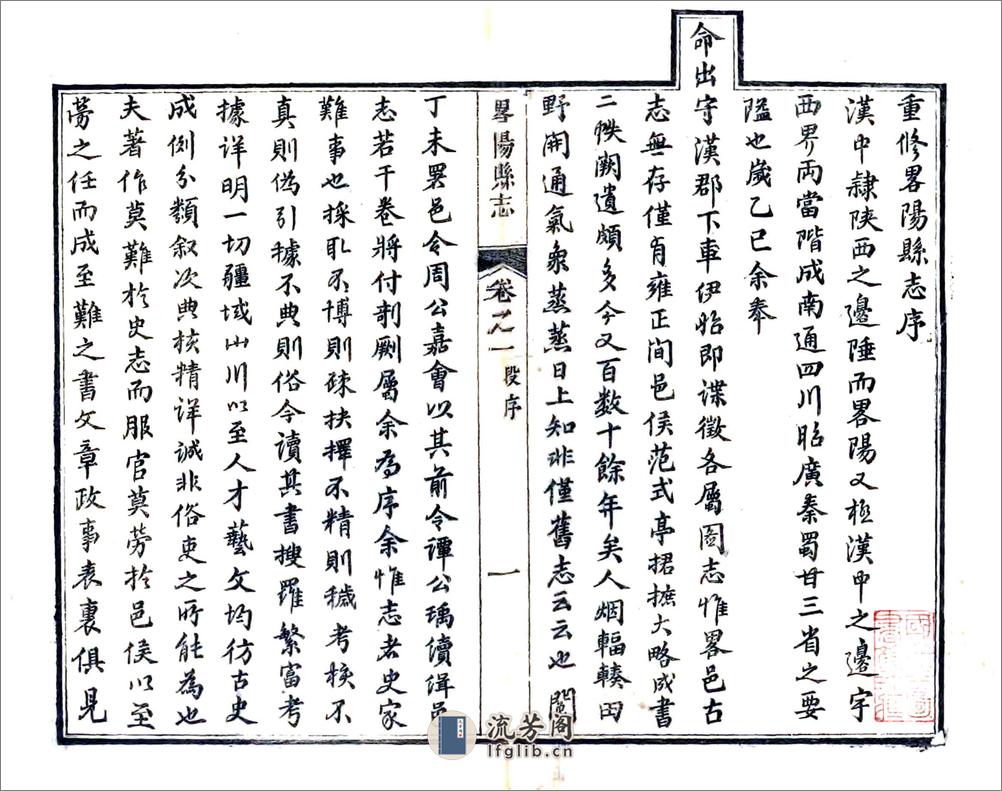 重修畧陽縣志序
漢中隷陕西之邊陲而畧陽又極漢中之邊宇
西界两當階成南通四川昭廣秦蜀甘三省之要
隘也嵗乙巳余奉
命出守漢郡下車伊始即諜徵各屬圖志惟畧邑古
志無存僅有雍正间邑侯范式亭捃摭大略成書
二帙闕遺頗多今又百数十餘年矣人烟輻輳田
野開通氣象蒸蒸日上知非僅舊志云云也閱
畧陽縣志
卷之一
段序
一
丁未畧邑令周公嘉會以其前令譚公瑀續缉邑
志若干卷將付剞劂屬余為序余惟志者史家
難事也採取不博則疎抉擇不精則穢考核不
真則偽引據不典則俗今讀其書搜羅繁富考
據详明一切疆域山川以至人才藝文均彷古史
成例分類叙次典核精详誠非俗吏之所能為也
夫著作莫難於史志而服官莫劳於邑侯以至
劳之任而成至難之書文章政事表裏俱見
流芳阁
lfglib.cn